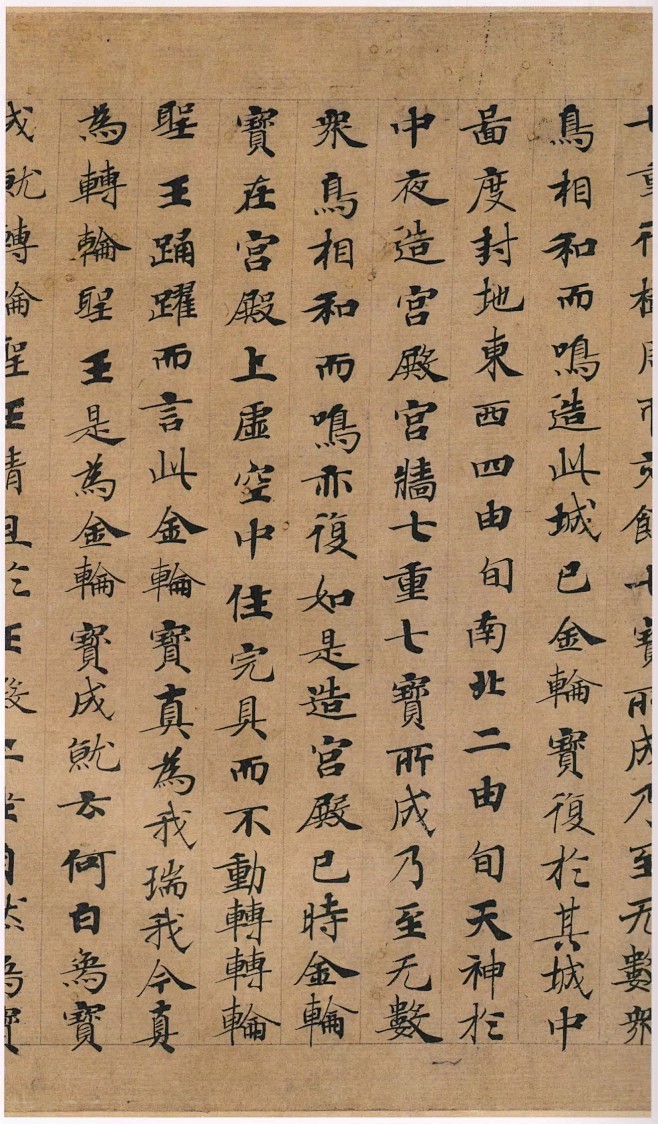 七重行樹周匝交飾七寶所成乃至无數衆
鳥相和而鳴造此城已金輪寶復於其城中
啚度封地東西四由旬南北二由旬天神於
中夜造宮殿宮牆七重七寶所成乃至无數
衆鳥相和而鳴亦復如是造宮殿已時金輪
寶在宮殿上虛空中住完具而不動轉轉輪
聖王踊躍而言此金輪寶真為我瑞我今真
為轉輪聖王是為金輪寶成就云何白象寶
成就轉輪聖王清旦於正殿上坐自然象寶